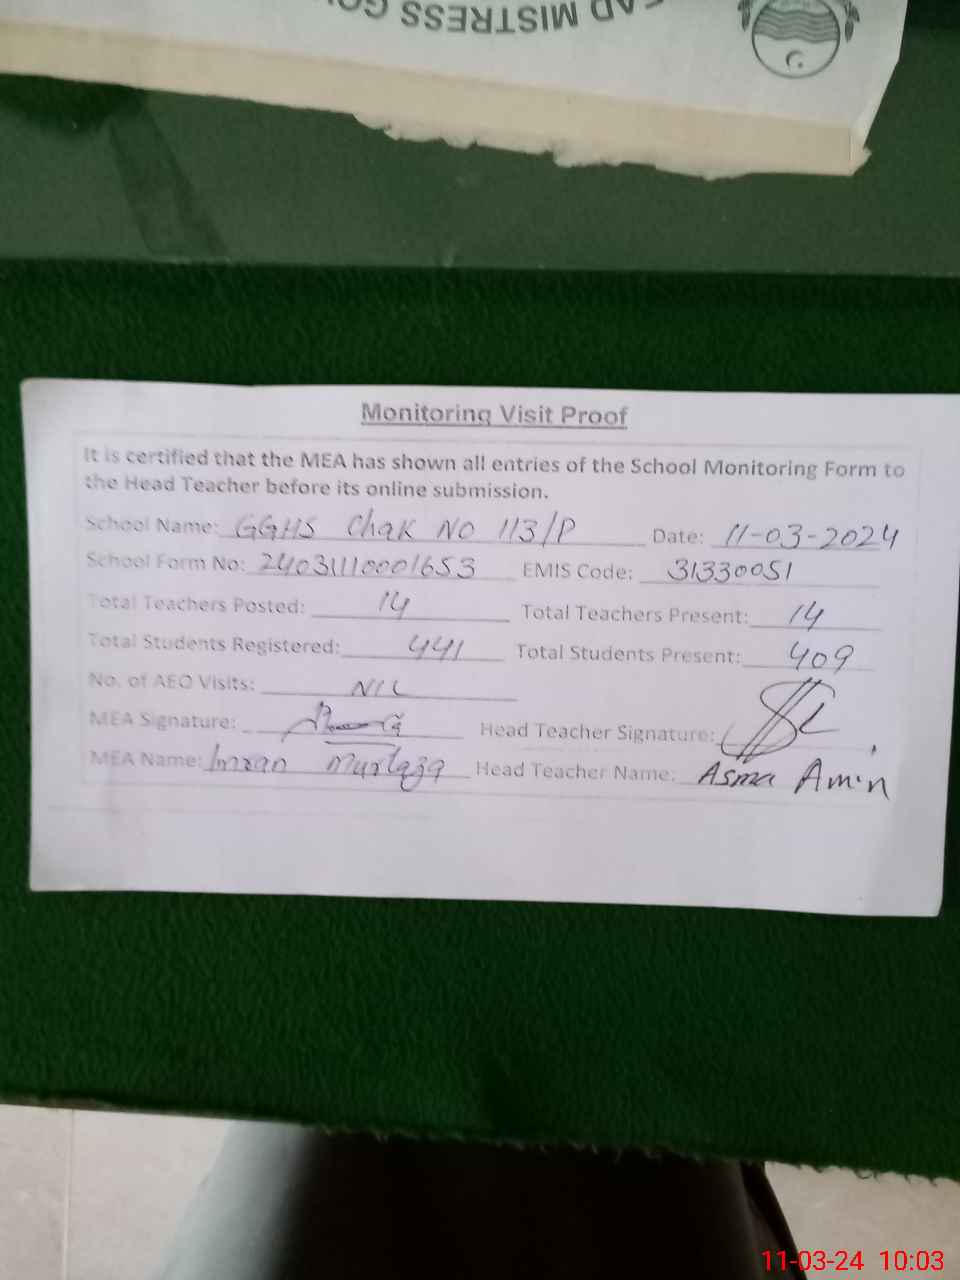 AD MISTRESS
Monitoring Visit Proof
It is certified that the MEA has shown all entries of the School Monitoring Form to
the Head Teacher before its online submission.
School Name: GGHS Chak NO 113/P Date: 11-03-2024
School Form No: 24031110001653 EMIS Code: 31330051
Total Teachers Posted: 14 Total Teachers Present: 14
Total Students Registered: 441 Total Students Present: 409
No. of AEO Visits: NIL
MEA Signature: Head Teacher Signature:
MEA Name: Imran Murtaza Head Teacher Name: Asma Amin
11-03-24 10:03